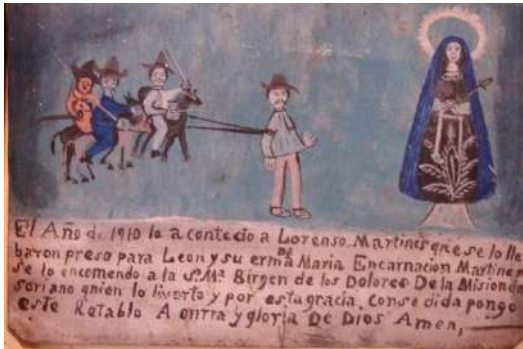 El Año de 1910 le acontecio a Lorenso Martines que se lo lle
baron preso para Leon y su ermna Maria Encarnacion Martines
se lo encomendo a la S. Ma Birgen de los Dolores De la Mision de
soriano quien lo liverto y por esta gracia consedida pongo
este Retablo A onrra y gloria De Dios Amen,